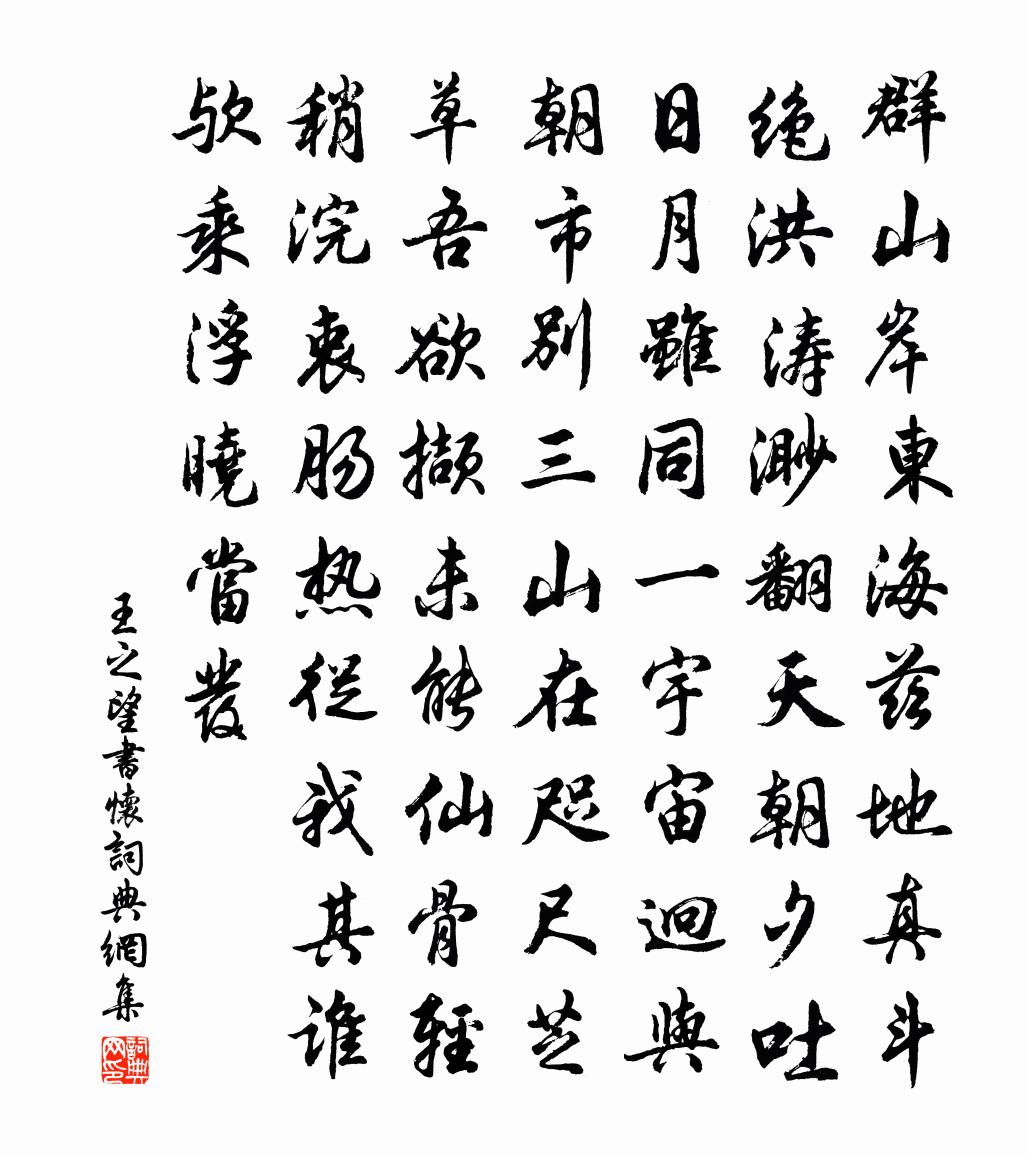 群山岸東海茲地真斗
绝洪涛渺翻天朝夕吐
日月雖同一宇宙迥與
朝市別三山在咫尺芝
草吾欲擷未能仙骨輕
稍浣衷肠热從我其谁
欤乘浮曉當發
王之望書懷詞典網集
詞典网印